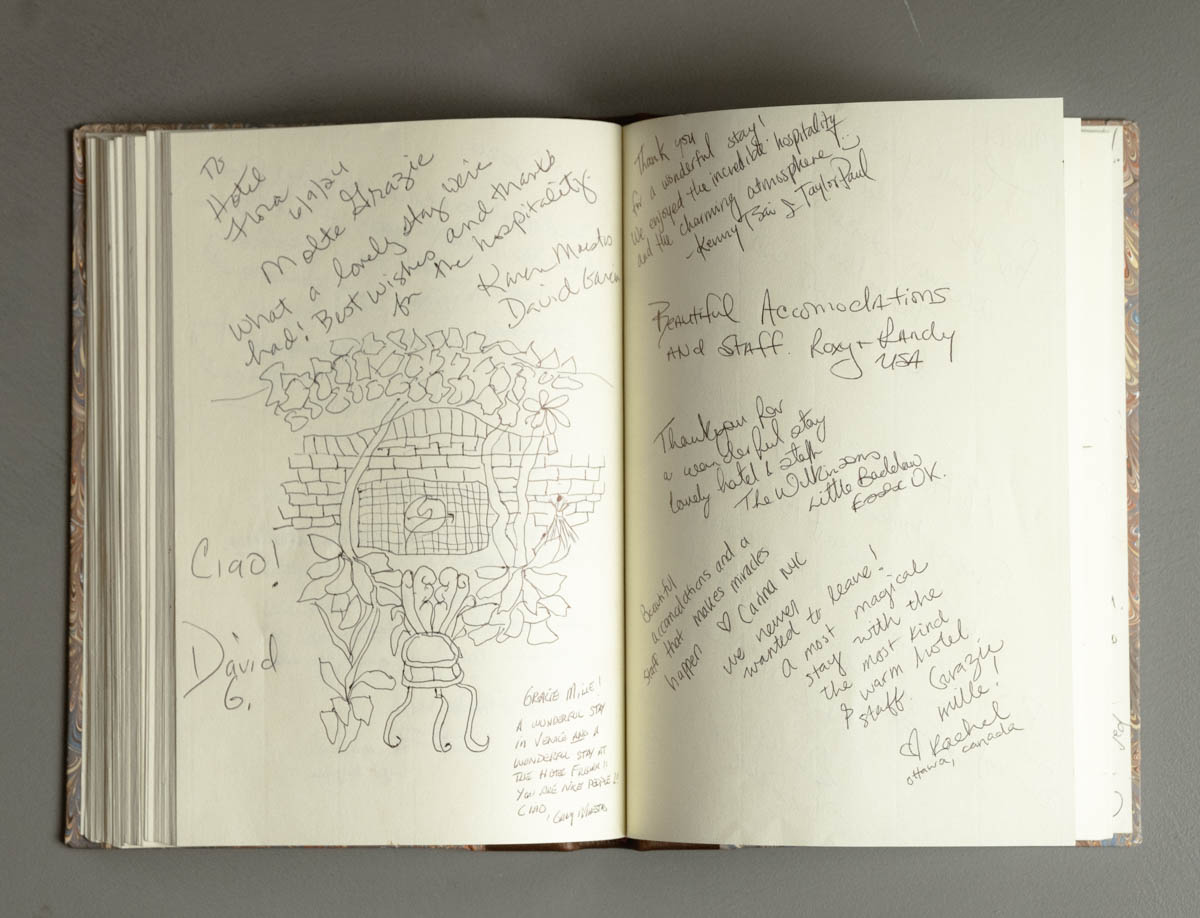 To
Hotel
Flora 6/9/24
Molte Grazie
what a lovely stay we've
had! Best wishes and thanks
for the hospitality.
Karen
David
Ciao!
David
G.
GRACIE MILLE!
A WONDERFUL STAY
IN VENICE AND A
WONDERFUL STAY AT
THE HOTEL
YOU ARE NICE PEOPLE!!
CIAO,
Thank you
for a wonderful stay!
We enjoyed the incredible hospitality
and the charming atmosphere :)
- Kenny Tsai & Taylor Paul
Beautiful Accomodations
AND Staff. Roxy + Randy
USA
Thankyou for
a wonderful stay
lovely hotel & staff
The Wilkinsons
Little Baddow
Essex UK.
Beautiful
accomodations and a
staff that makes miracles
happen ♡ Carina NYC
we never
wanted to leave!
a most magical
stay with the
the most kind
& warm hotel
staff. Grazie
mille!
♡ Rachel
Ottawa, Canada